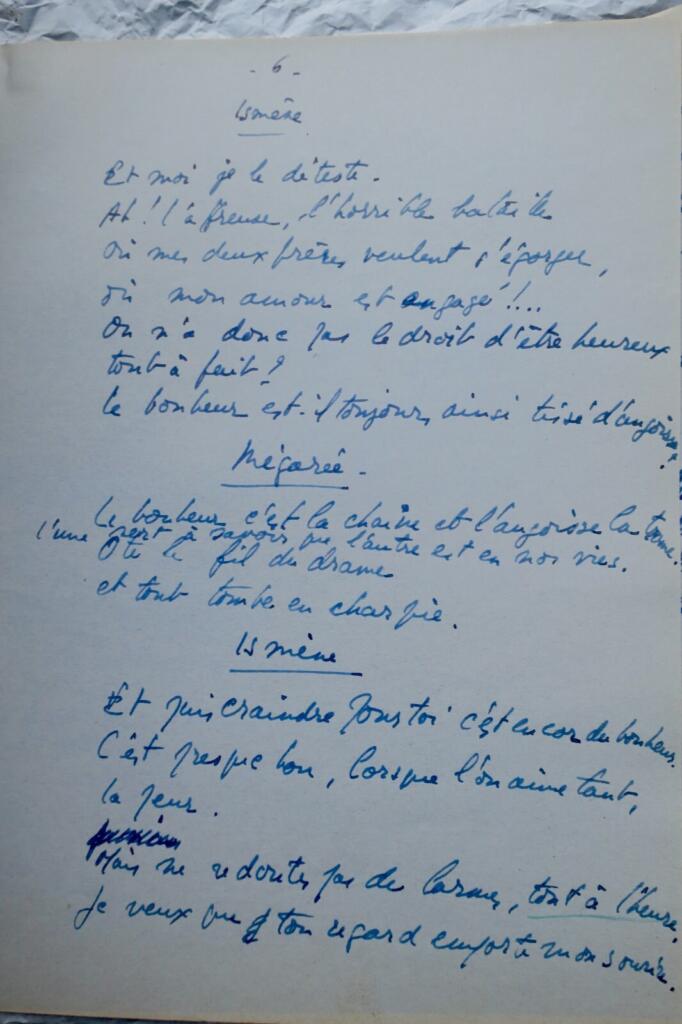 - 6 -
Ismène
Et moi je le déteste.
Ah ! l'affreuse, l'horrible bataille
où mes deux frères veulent s'égorger,
où mon amour est engagé !...
On n'a donc pas le droit d'être heureux
tout à fait ?
le bonheur est-il toujours ainsi tissé d'angoisse ?
Mégarée -
Le bonheur c'est la chaîne et l'angoisse la trame.
l'une sert à savoir que l'autre est en nos vies.
Ote le fil du drame
et tout tombe en charpie.
Ismène
Et puis craindre pour toi c'est encor du bonheur.
C'est presque bon, lorsque l'on aime tant,
la peur.
Mais ne redoutes pas de larmes, tout à l'heure,
Je veux que ton regard emporte mon sourire.